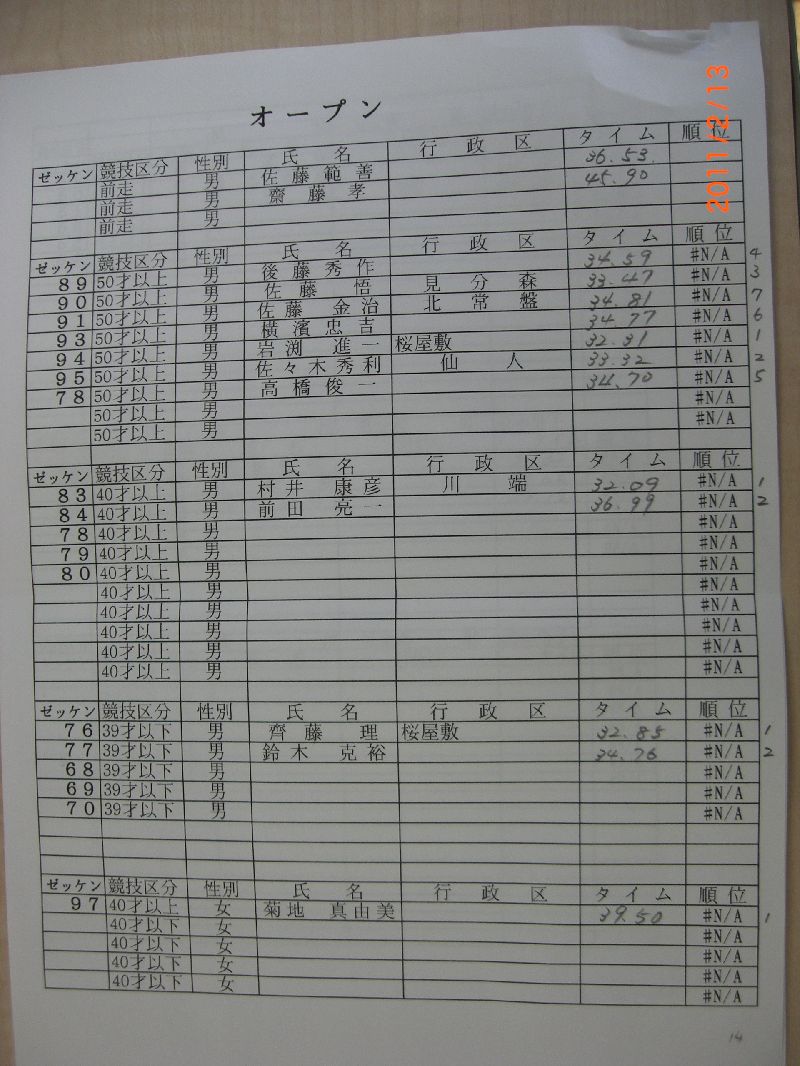 2011/2/13
オープン
ゼッケン 競技区分 性別 氏名 行政区 タイム 順位
前走 男 佐藤範善 36.53
前走 男 齋藤孝 45.90
前走 男
ゼッケン 競技区分 性別 氏名 行政区 タイム 順位
89 50才以上 男 後藤秀作 34.59 #N/A 4
90 50才以上 男 佐藤悟 見分森 33.47 #N/A 3
91 50才以上 男 佐藤金治 北常盤 34.81 #N/A 7
93 50才以上 男 横濱忠吉 34.77 #N/A 6
94 50才以上 男 岩渕進一 桜屋敷 32.31 #N/A 1
95 50才以上 男 佐々木秀利 仙人 33.32 #N/A 2
78 50才以上 男 高橋俊一 34.70 #N/A 5
50才以上 男 #N/A
50才以上 男 #N/A
ゼッケン 競技区分 性別 氏名 行政区 タイム 順位
83 40才以上 男 村井康彦 川端 32.09 #N/A 1
84 40才以上 男 前田亮一 36.99 #N/A 2
78 40才以上 男 #N/A
79 40才以上 男 #N/A
80 40才以上 男 #N/A
40才以上 男 #N/A
40才以上 男 #N/A
40才以上 男 #N/A
40才以上 男 #N/A
40才以上 男 #N/A
ゼッケン 競技区分 性別 氏名 行政区 タイム 順位
76 39才以下 男 齊藤理 桜屋敷 32.85 #N/A 1
77 39才以下 男 鈴木克裕 34.76 #N/A 2
68 39才以下 男 #N/A
69 39才以下 男 #N/A
70 39才以下 男 #N/A
ゼッケン 競技区分 性別 氏名 行政区 タイム 順位
97 40才以上 女 菊地真由美 39.50 #N/A 1
40才以下 女 #N/A
40才以下 女 #N/A
40才以下 女 #N/A
40才以下 女 #N/A
14